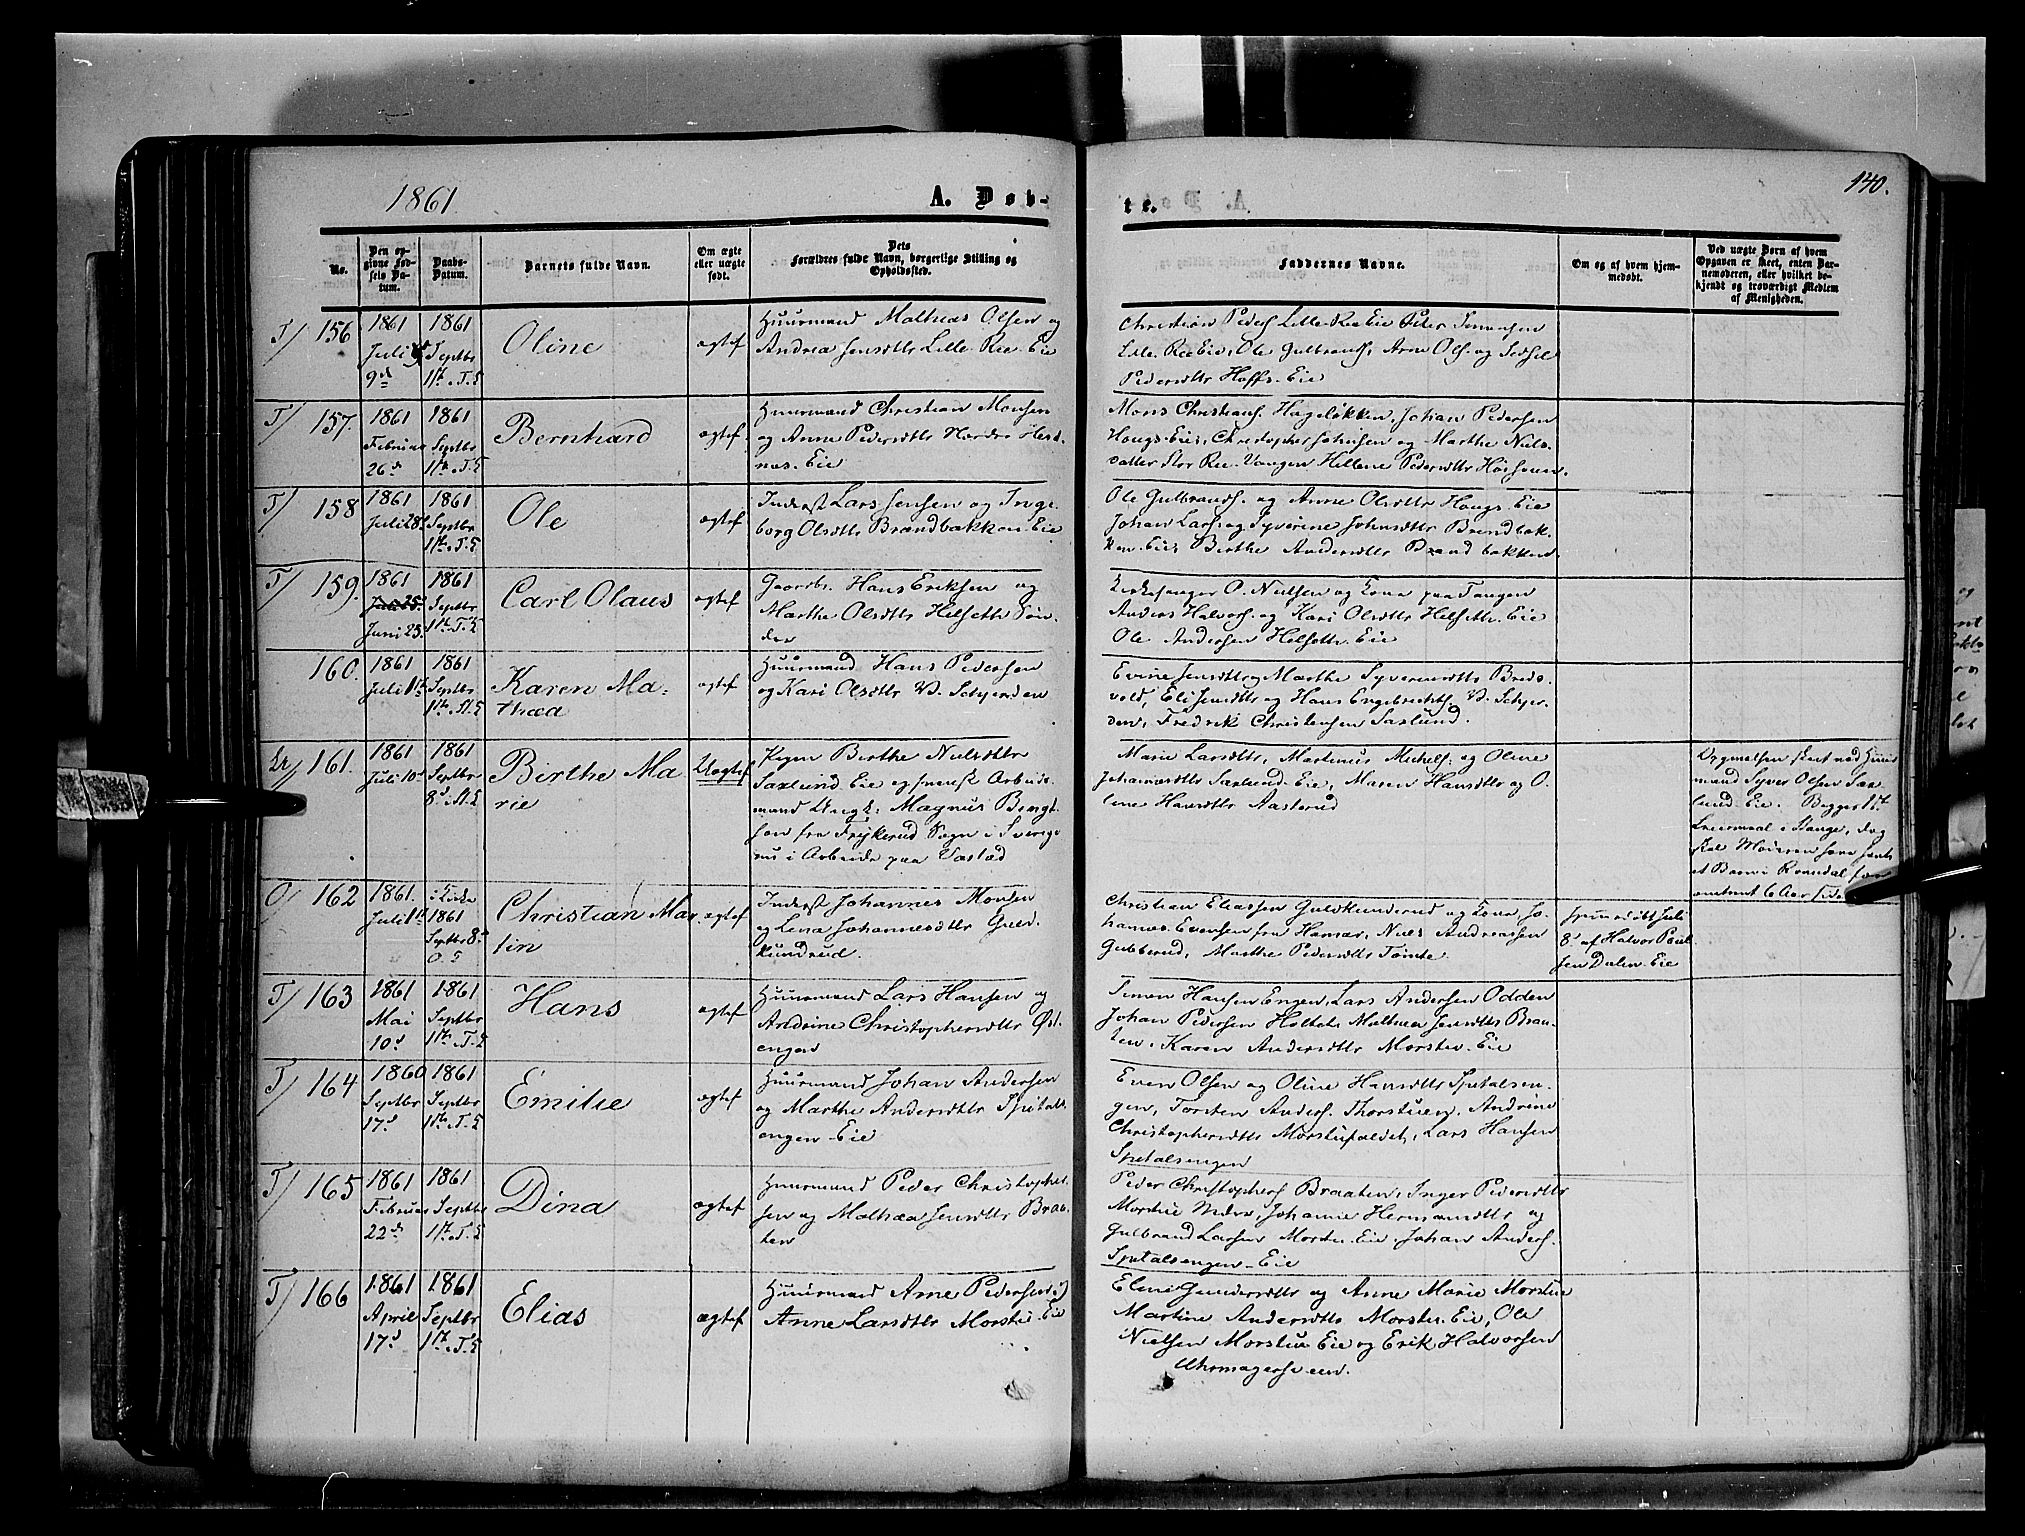 1861
A. Døb-
te.
140.
No.
Den op-
givne Fød-
sels Da-
tum.
Daabs-
Datum.
Barnets fulde Navn.
Om ægte
eller uægte
født.
Dets
Forældres fulde Navn, borgerlige Stilling og
Opholdssted.
Faddernes Navne.
Om og af hvem hjem-
medøbt.
Ved uægte Børn af hvem
Opgaven er skeet, enten Bar-
nemoderen, eller hvilket be-
kjendt og troværdigt Medlem
af Menigheden.
T/ 156
1861
Juli
9d
1861
Septbr
1ste T. K
Oline
ægtef
Huusmand Mathias Olsen og
Andrea Jensdttr Lille Ree Eie
Christian Peders. Lille Ree Eie Peter Simensen
Lille Ree Eie, Ole Gulbrands., Arne Ols. og Sidsel
Pedersdttr Hoffs. Eie
T/ 157.
1861
Februar
26d
1861
Septbr
1ste T. K
Bernhard
ægtef.
Huusmand Christian Monsen
og Anne Pedersdttr Nordre
nes. Eie
Mons Christians. Hageløkken, Johan Pedersen
Hougs Eie, Christopher Johnsen og Marthe Niels-
datter Stor Ree Vangen Hellene Pedersdttr
T/ 158
1861
Juli 28d
1861
Septbr
1ste T. K
Ole
ægtef
Inderst Lars Jensen og Inge-
borg Olsdttr Brændbakken Eie
Ole Gulbrands. og Anne Olsdttr Hougs Eie
Johan Lars. og Syverine Johnsdttr Brendbak-
ken Eie, Birthe Andersdttr Brændbakken
T/ 159.
1861
Juni 25.
1861
Septbr
1ste T. K
Carl Olaus
ægtef
Gaardbr. Hans Eriksen og
Marthe Olsdttr Helseth Søn-
dre
Kirkesanger O. Nielsen og Kone paa Tangen
Anders Halvors. og Kari Olsdttr Helseth. Eie
Ole Andersen Helseth. Eie
160.
1861
Juli 1ste
1861
Septbr
1ste St. K
Karen Ma-
thæa
ægtef
Huusmand Hans Pedersen
og Kari Olsdttr V. Schjerden
Evine Jensdttr, Marthe Syverinsdttr Breds-
vold, Eli Jensdttr og Hans Engebrechts. V. Schjer-
den, Fredrik Christensen Saxlund.
161.
1861
Juli 10d
1861
Septbr
8d St. K
Birthe Ma
rie
Uægtef
Pigen Birthe Nielsdttr
Saxlund Eie og svensk Arbeids-
mand Ungk. Magnus Bengt-
sen fra Frykerud Sogn i Sverige
nu i Arbeide paa Vaslad
Marie Larsdttr, Martinus Michels. og Oline
Johannesdttr Saxlund. Eie, Maren Hansdttr og O-
line Hansdttr Aasterud
Opgivelsen skeet ved Huus-
mand Syver Olsen Sax-
lund. Eie. Begges 1ste
Leiermaal i Stange, dog
skal Moderen have havt
et Barn i Romedal for
omtrent 6 Aar siden
O/ 162
1861.
Juli 1ste
i Kirke
1861
Septbr 8d
O. K
Christian Mar
tin
ægtef
Inderst Johannes Monsen
og Lena Johannesdttr Guld-
kundrud.
Christian Eliassen Guldkunderud og Kone, Jo-
hannes Evensen fra Hamar, Niels Andreassen
Gubberud, Marthe Pedersdttr Tømte.
Hjemmedøbt Juli
8d af Halvor Poul-
sen Dalen. Eie
T/ 163
1861
Mai
10d
1861
Septbr
1ste T. K
Hans
ægtef
Huusmand Lars Hansen og
Andrine Christophersdttr Øst-
engen
Simon Hansen Engen, Lars Andersen Odden
Johan Pedersen Holtet, Mathea Jensdttr Braa-
ten, Karen Andersdttr Morstu. Eie
T/ 164
1860
Septbr
17d
1861
Septbr
1ste T. K
Emilie
ægtef
Huusmand Johan Andersen
og Marthe Andersdttr Spitals-
engen Eie
Even Olsen og Oline Hansdttr Spitalsen-
gen, Torsten Anders. Thorstuen, Andrine
Christophersdttr Morstufaldet, Lars Hansen
Spitalsengen
T/ 165
1861
Februar
22de
1861
Septbr
1ste T. K
Dina
ægtef
Huusmand Peder Christopher-
sen og Mathæa Jensdttr Braa-
ten
Peder Christophers Braaten, Inger Pedersdttr
Morstu Nedre, Johanne Hermansdttr og
Gulbrand Larsen Morstu. Eie, Johan Anders.
Spitalsengen. Eie
T/ 166
1861
April
17d
1861
Septbr
1ste T. K
Elias
ægtef
Huusmand Arne Pedersen og
Anne Larsdttr Morstu. Eie
Eline Gundersdttr og Anne Marie Morstue
Martine Andersdttr Morstu. Eie, Ole
Nielsen Morstue Eie og Erik Halvorsen
Uhrmagerstuen.